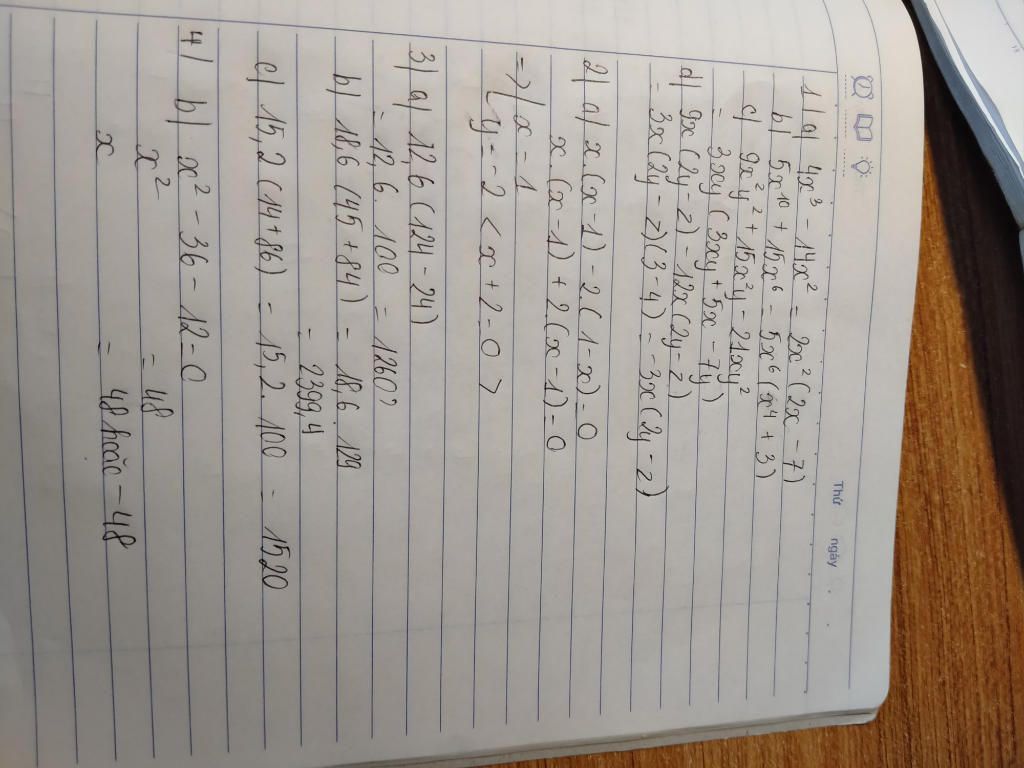 Thứ ngày
1) a) 4x³ - 14x² = 2x² (2x - 7)
b) 5x¹⁰ + 15x⁶ = 5x⁶ (x⁴ + 3)
c) 9x²y² + 15x²y - 21xy²
= 3xy (3xy + 5x - 7y)
d) 9x (2y - z) - 12x (2y - z)
= 3x (2y - z)(3 - 4) = -3x (2y - z)
2) a) x (x - 1) - 2 (1 - x) = 0
x (x - 1) + 2 (x - 1) = 0
=> { x = 1
{ y = -2 < x + 2 = 0 >
3) a) 12,6 (124 - 24)
= 12,6 . 100 = 1260
b) 18,6 (45 + 84) = 18,6 . 129
= 2399,4
c) 15,2 (14 + 86) = 15,2 . 100 = 1520
4) b) x² - 36 - 12 = 0
x² = 48
x = 48 hoặc - 48